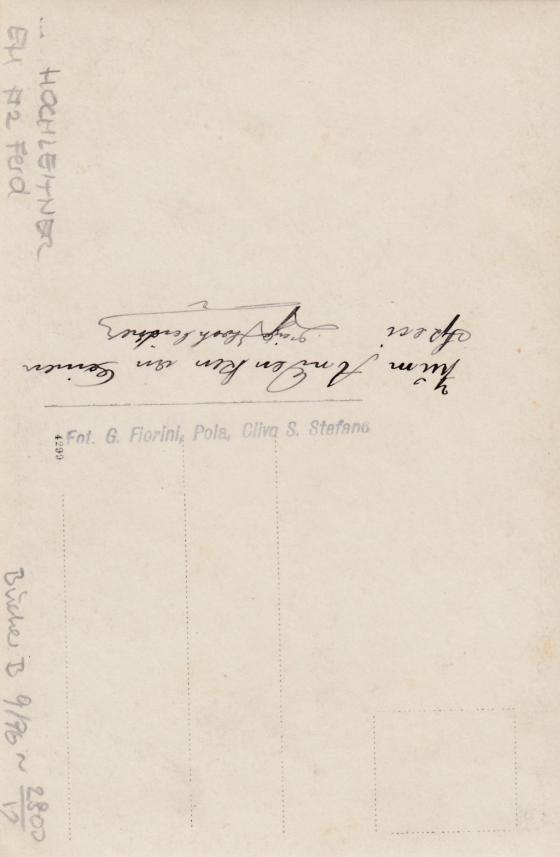 ... HOCHLEITNER
EH #2 Ferd
Zum Andenken an Seinen
Hochleitner
Fot. G. Fiorini, Pola, Clivo S. Stefano
4299
Bücher B 9/76 ~ 2800